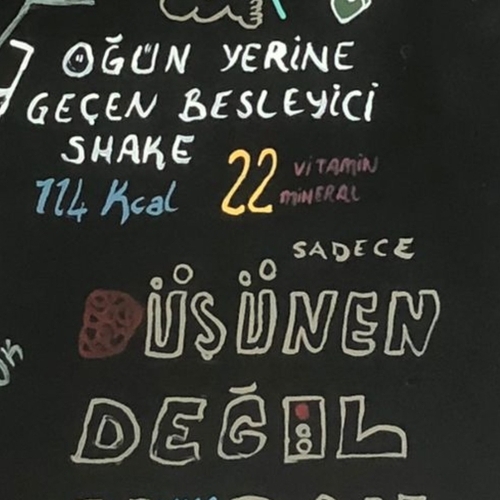 ÖĞÜN YERİNE
GEÇEN BESLEYİCİ
SHAKE
114 Kcal 22 VİTAMİN MİNERAL
SADECE
DÜŞÜNEN
DEĞİL